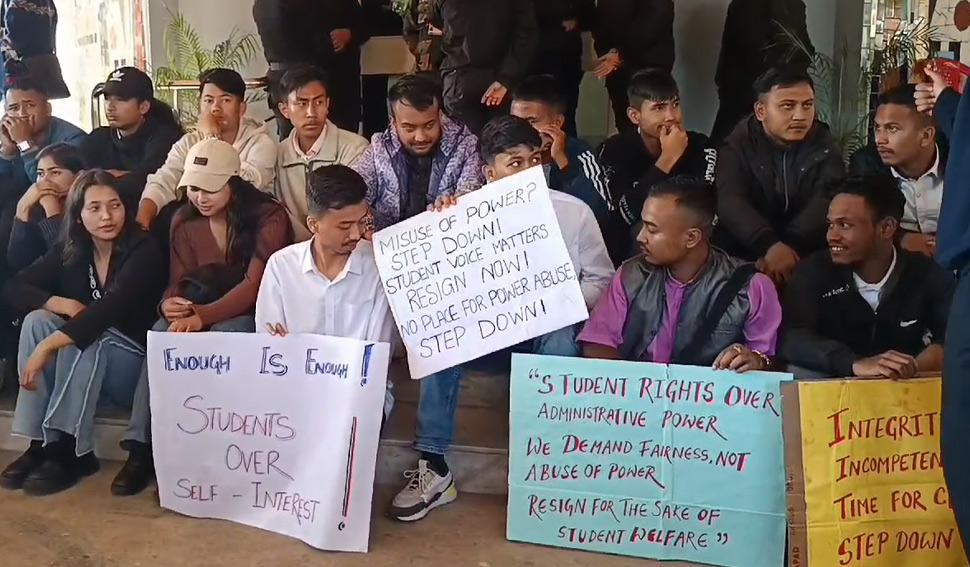 MISUSE OF POWER?
STEP DOWN!
STUDENT VOICE MATTERS
RESIGN NOW!
NO PLACE FOR POWER ABUSE
STEP DOWN!
ENOUGH IS ENOUGH!
STUDENTS
OVER
SELF - INTEREST!
"STUDENT RIGHTS OVER
ADMINISTRATIVE POWER
WE DEMAND FAIRNESS, NOT
ABUSE OF POWER
RESIGN FOR THE SAKE OF
STUDENT WELFARE"
INTEGRIT
INCOMPETEN
TIME FOR C
STEP DOWN